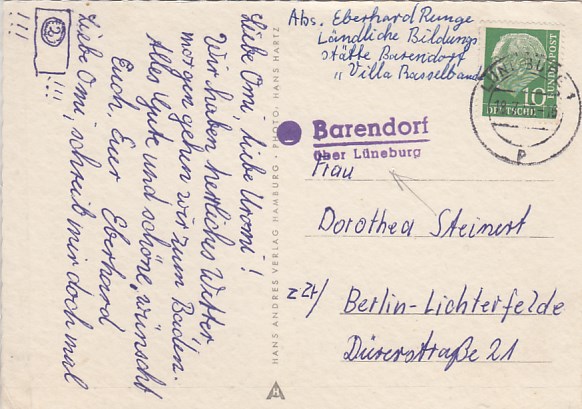 Liebe Omi - liebe Uromi!
Wir haben herrliches Wetter
morgen gehen wir zum Baden.
Alles Gute und schöne, wünscht
Euch, Euer Eberhard
Liebe Omi, schreib mir doch mal
!!!
!!!
HANS ANDRES VERLAG HAMBURG · PHOTO: HANS HARTZ
Abs. Eberhard Runge
Ländliche Bildungs
stätte Barendorf
"Villa Rasselbande
DEUTSCHE BUNDESPOST
10
LÜNEBURG 1
Barendorf
über Lüneburg
Frau
Dorothea Steinert
z.Zt/ Berlin-Lichterfelde
Dürerstraße 21